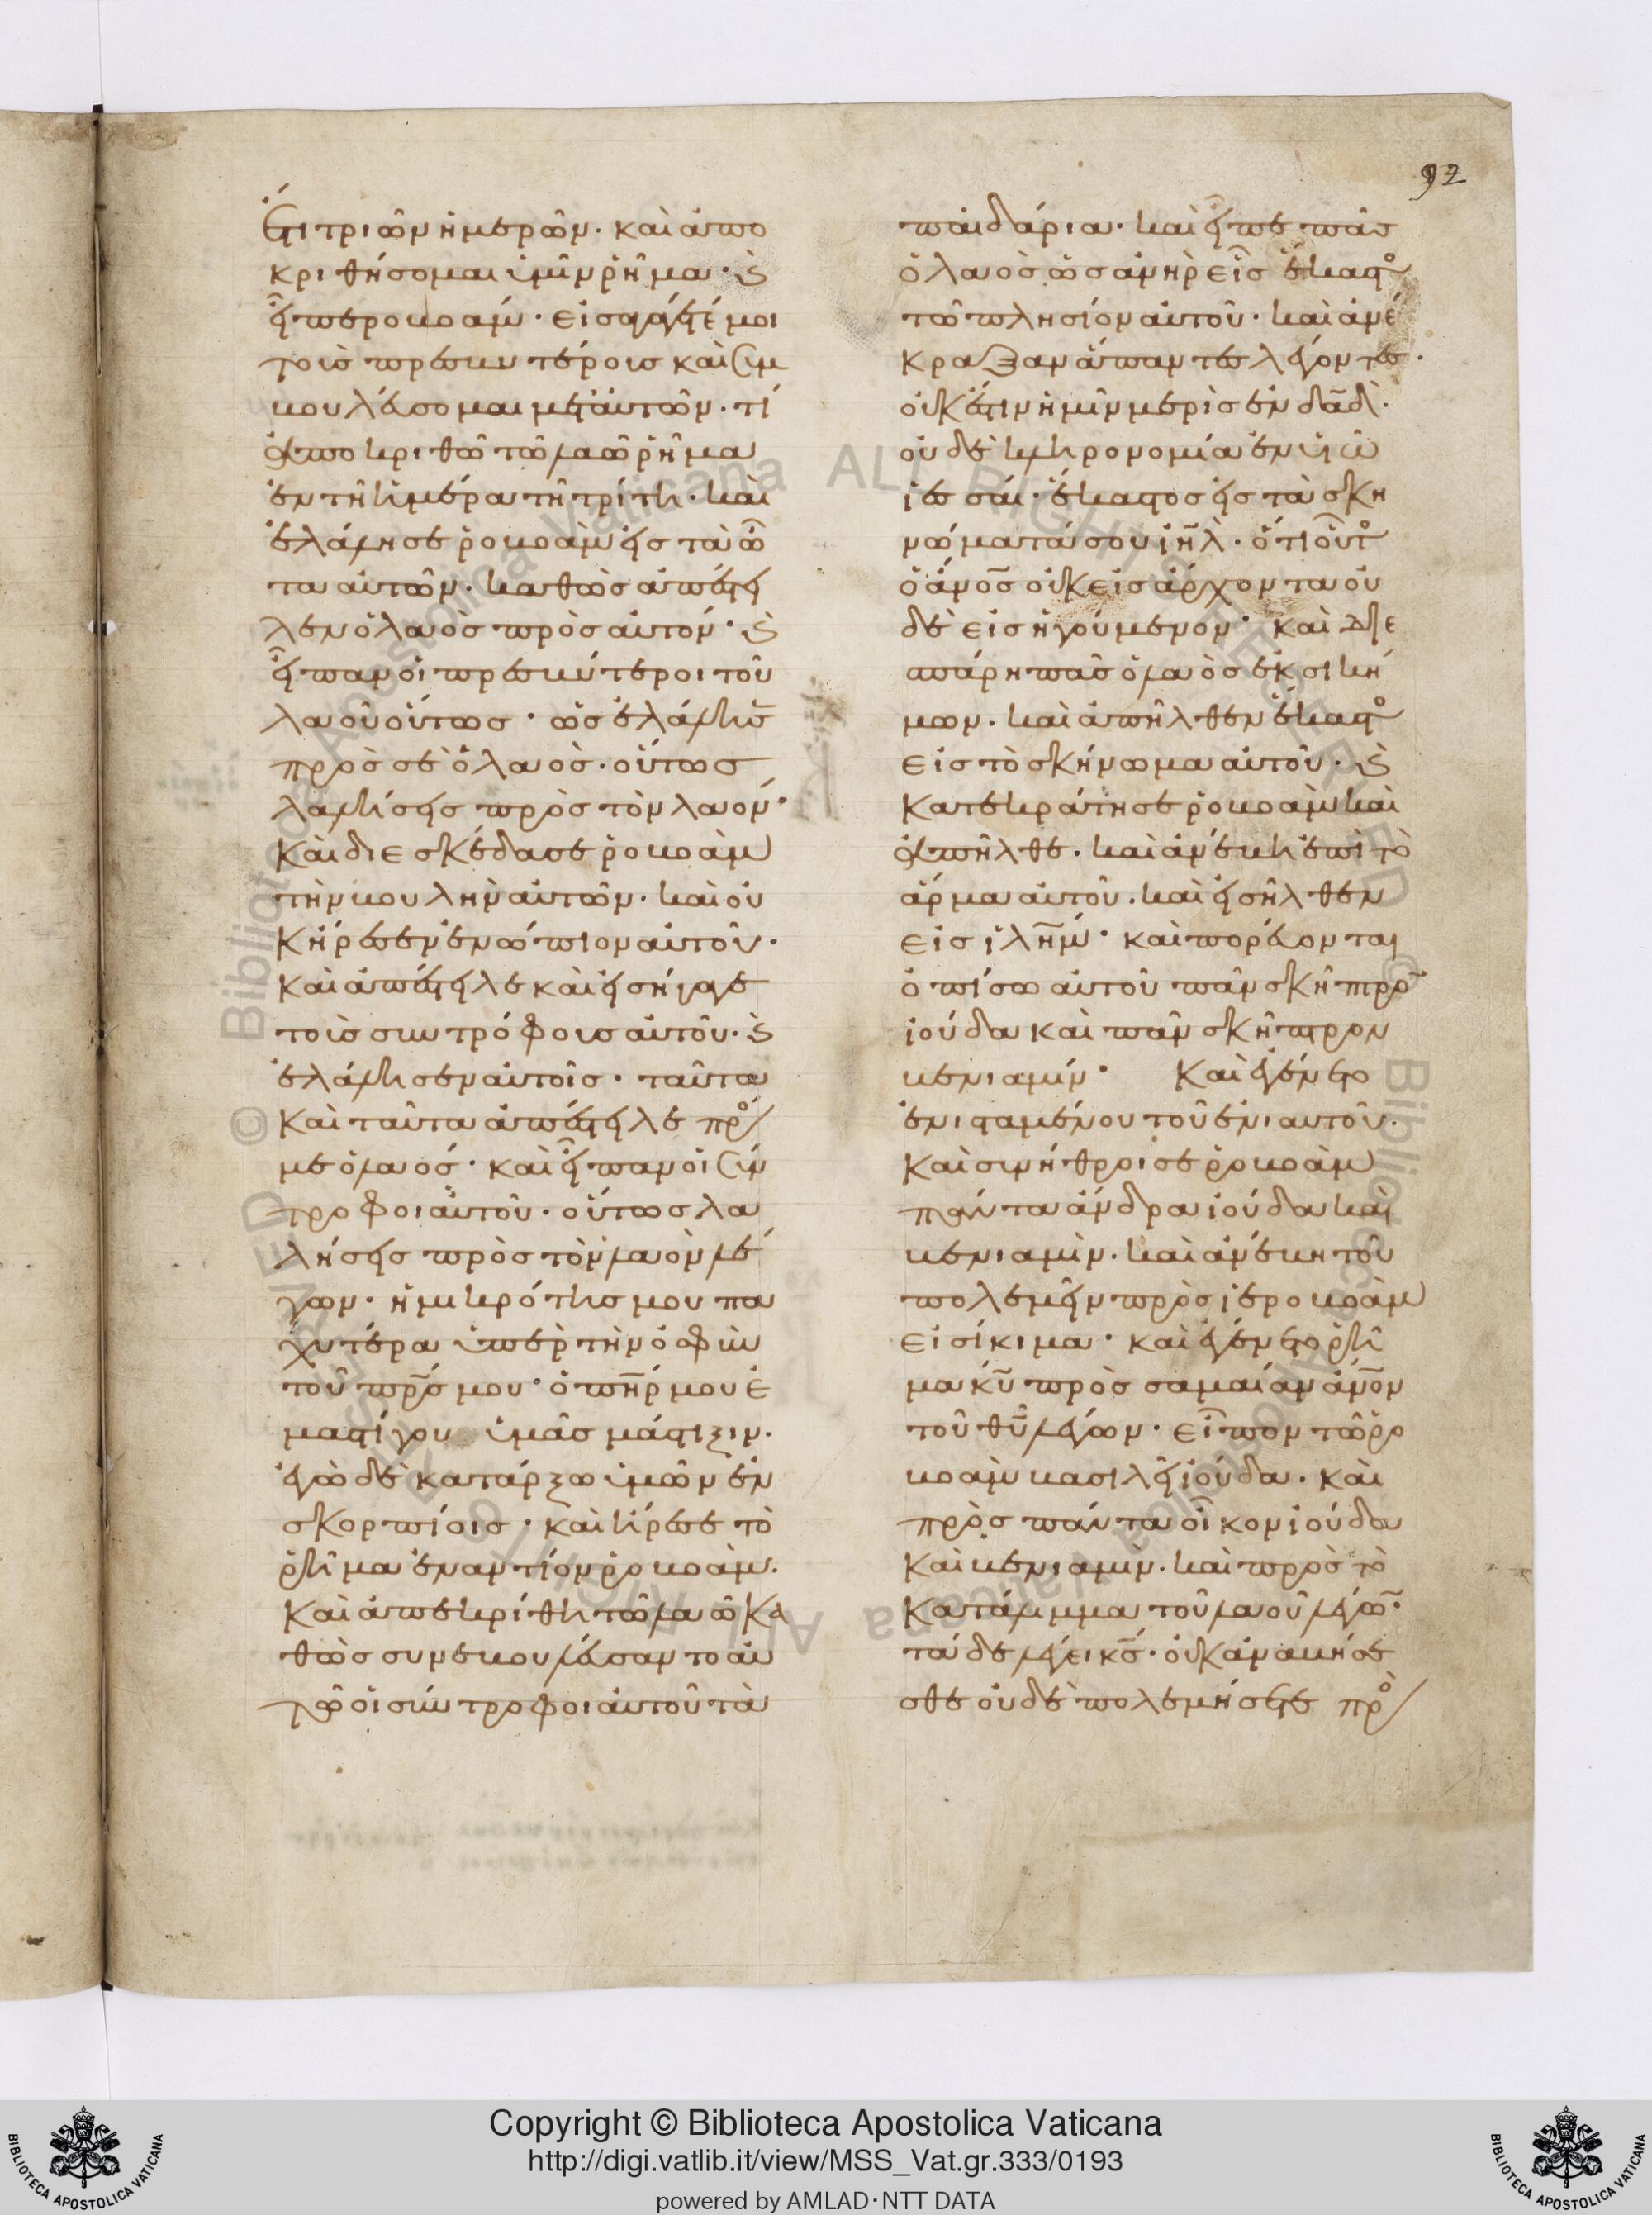 92
ἔτι τριῶν ἡμερῶν· καὶ ἀπο
κριθήσομαι ὑμῖν ῥῆμα· ϗ
εἶπε ροβοάμ· εἰσαγάγετέ μοι
τοὺς πρεσβυτέρους καὶ συμ
βουλεύσομαι μετ' αὐτῶν· τί
ἀποκριθῶ τῶ λαῶ ῥῆμα
ἐν τῆ ἡμέρα τῆ τρίτη· καὶ
ἐλάλησε ῥοβοὰμ εἰς τὰ ὦ
τα αὐτῶν· καθὼς ἀπέστει
λεν ὁ λαὸς πρὸς αὐτόν· ϗ
εἶπαν οἱ πρεσβύτεροι τοῦ
λαοῦ οὕτως· ὡς ἐλάλησε
πρὸς σὲ ὁ λαὸς· οὕτως
λαλήσεις πρὸς τὸν λαόν·
καὶ διεσκέδασε ῥοβοὰμ
τὴν βουλὴν αὐτῶν· καὶ οὐ
κ ἤρεσεν ἐνώπιον αὐτοῦ·
καὶ ἀπέστειλε καὶ εἰσήγαγε
τοὺς συντρόφους αὐτοῦ· ϗ
ἐλάλησεν αὐτοῖς· ταῦτα
καὶ ταῦτα ἀπέστειλε πρό(ς)
με ὁ λαός· καὶ εἶπαν οἱ σύν
τροφοι αὐτοῦ· οὕτως λα
λήσεις πρὸς τὸν λαὸν λέ
γων· ἡ μικρότης μου πα
χυτέρα ὑπὲρ τὴν ὀσφὺν
τοῦ πρ̅σ μου· ὁ πη̅ρ μου ἐ
μαστίγου ὑμᾶς μάστιξιν·
ἐγὼ δὲ κατάρξω ὑμῶν ἐν
σκορπίοις· καὶ ἤρεσε τὸ
ῥῆμα ἐναντίον ῥοβοάμ·
καὶ ἀπεκρίθη τῶ λαῶ κα
θὼς συνεβουλεύσαντο αὐ
τῶ οἱ σύντροφοι αὐτοῦ τὰ
παιδάρια· καὶ εἶπε πᾶς
ὁ λαὸς ὡς ἀνὴρ εἷς ἕκαστο(ς)
τῶ πλησίον αὐτοῦ· καὶ ἀνέ
κραξαν ἅπαντες λέγοντες·
οὐκ ἔστιν ἡμῖν μερὶς ἐν δα̅δ·
οὐδὲ κληρονομία ἐν υἱῶ
ἰεσσαί· ἕκαστος εἰς τὰ σκη
νώματά σου ιη̅λ· ὅτι οὗτο(ς)
ὁ α̅νο̅ς οὐκ εἰς ἄρχοντα οὐ
δὲ εἰς ἡγούμενον· καὶ διε
σπάρη πᾶς ὁ λαὸς ἐκ σική
μων· καὶ ἀπῆλθεν ἕκαστο(ς)
εἰς τὸ σκήνωμα αὐτοῦ· ϗ
κατεκράτησε ῥοβοὰμ καὶ
ἀπῆλθε· καὶ ἀνέβη ἐπὶ τὸ
ἅρμα αὐτοῦ· καὶ εἰσῆλθεν
εἰς ιλη̅μ· καὶ πορεύονται
ὀπίσω αὐτοῦ πᾶν σκῆπτρο̅
ἰούδα καὶ πᾶν σκῆπτρον
βενιαμίν· Καὶ ἐγένετο
ἐνισταμένου τοῦ ἐνιαυτοῦ·
καὶ συνήθροισε ῥοβοὰμ
πάντα ἄνδρα ἰούδα καὶ
βενιαμὶν· καὶ ἀνέβη τοῦ
πολεμεῖν πρὸς ἱεροβοὰμ
εἰ σίκιμα· καὶ ἐγένετο ῥῆ
μα κ̅υ πρὸς σαμαίαν ἄν̅ον
τοῦ θ̅υ λέγων· εἶπον τῶ ῥο
βοὰμ βασιλεῖ ἰούδα· καὶ
πρὸς πάντα οἶκον ἰούδα
καὶ βενιαμὶν· καὶ πρὸς τὸ
κατάλιμμα τοῦ λαοῦ λέγω̅·
τάδε λέγει κ̅ς· οὐκ ἀναβήσε
σθε οὐδὲ πολεμήσετε πρὸ(ς)
© Biblioteca Apostolica Vaticana ALL RIGHTS RESERVED
Copyright © Biblioteca Apostolica Vaticana
http://digi.vatlib.it/view/MSS_Vat.gr.333/0193
powered by AMLAD·NTT DATA
BIBLIOTECA APOSTOLICA VATICANA
BIBLIOTECA APOSTOLICA VATICANA